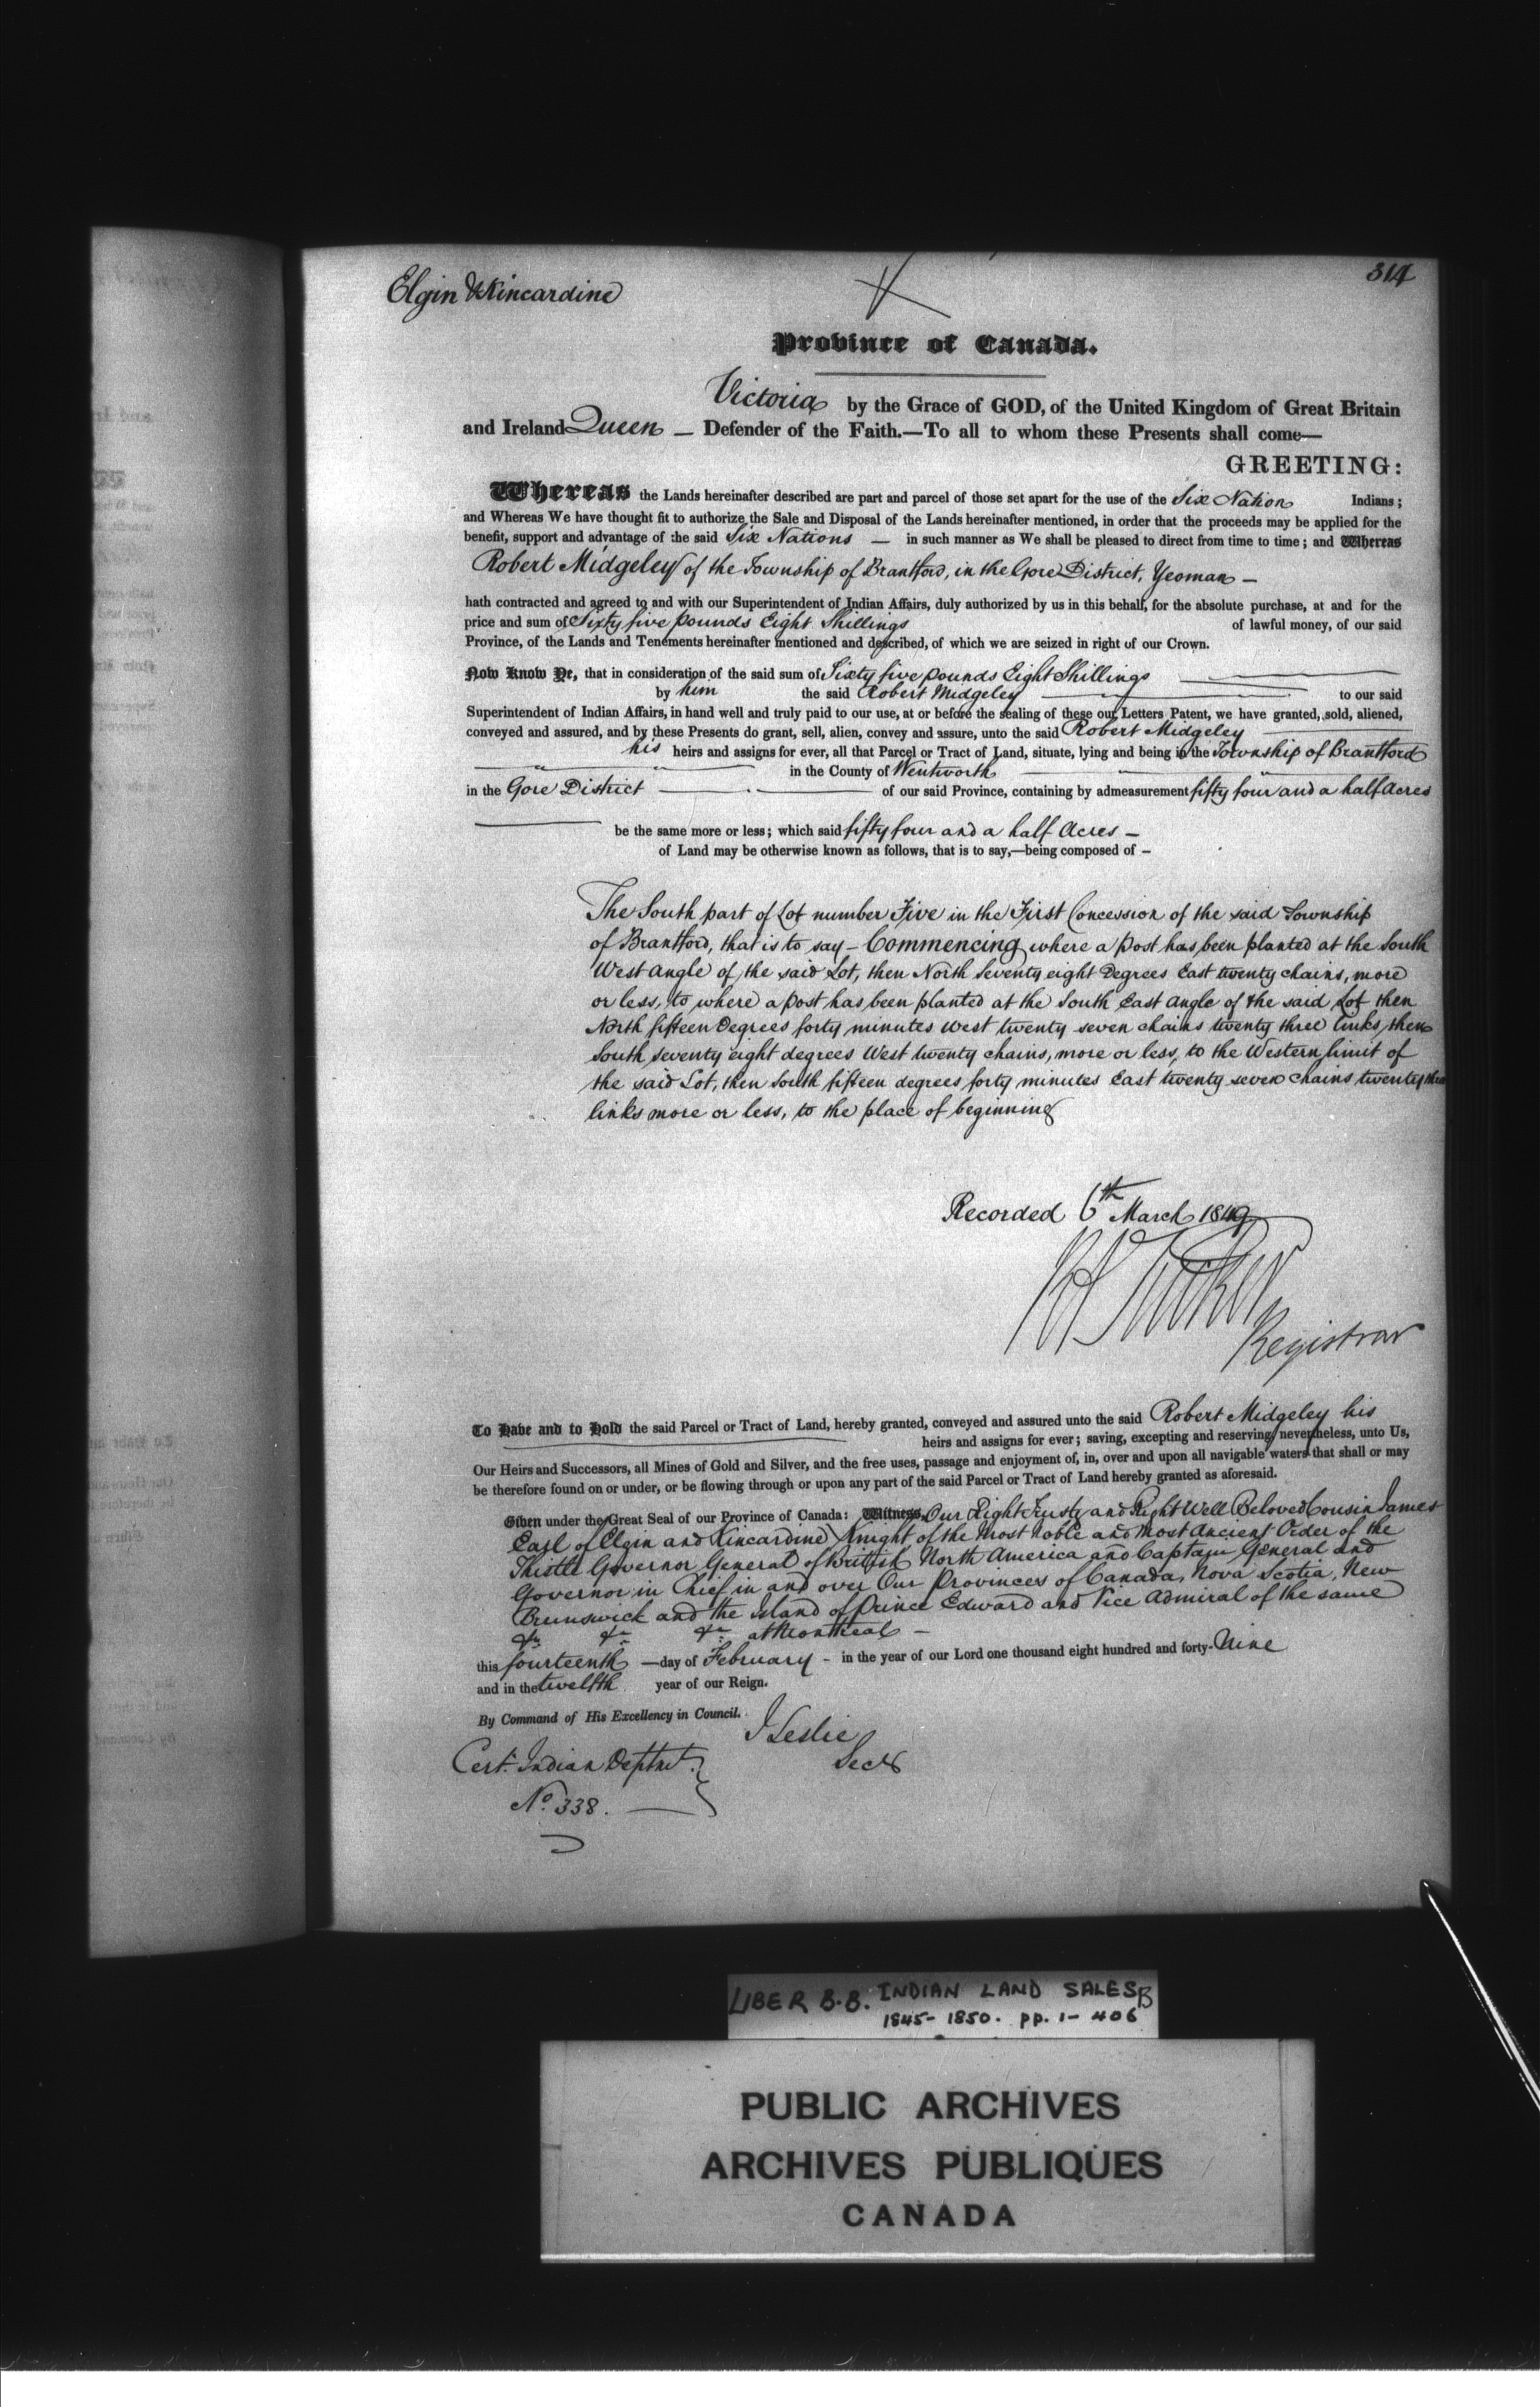 Elgin & Kincardine
314
Province of Canada.
Victoria by the Grace of GOD, of the United Kingdom of Great Britain
and Ireland Queen — Defender of the Faith.—To all to whom these Presents shall come—
GREETING:
Whereas the Lands hereinafter described are part and parcel of those set apart for the use of the Six Nation Indians;
and Whereas We have thought fit to authorize the Sale and Disposal of the Lands hereinafter mentioned, in order that the proceeds may be applied for the
benefit, support and advantage of the said Six Nations — in such manner as We shall be pleased to direct from time to time; and Whereas
Robert Midgeley of the Township of Brantford, in the Gore District, Yeoman —
hath contracted and agreed to and with our Superintendent of Indian Affairs, duly authorized by us in this behalf, for the absolute purchase, at and for the
price and sum of Sixty five pounds Eight Shillings of lawful money, of our said
Province, of the Lands and Tenements hereinafter mentioned and described, of which we are seized in right of our Crown.
Now Know Ye, that in consideration of the said sum of Sixty five pounds Eight Shillings
by him the said Robert Midgeley to our said
Superintendent of Indian Affairs, in hand well and truly paid to our use, at or before the sealing of these our Letters Patent, we have granted, sold, aliened,
conveyed and assured, and by these Presents do grant, sell, alien, convey and assure, unto the said Robert Midgeley
his heirs and assigns for ever, all that Parcel or Tract of Land, situate, lying and being in the Township of Brantford
in the County of Wentworth
in the Gore District of our said Province, containing by admeasurement fifty four and a half Acres
be the same more or less; which said fifty four and a half Acres —
of Land may be otherwise known as follows, that is to say,—being composed of —
The South part of Lot number Five in the First Concession of the said Township
of Brantford, that is to say — Commencing where a post has been planted at the South
West angle of the said Lot, then North Seventy eight Degrees East twenty chains, more
or less, to where a post has been planted at the South East angle of the said Lot then
North fifteen Degrees forty minutes West twenty seven chains twenty three links, then
South seventy eight degrees West twenty chains, more or less, to the Western limit of
the said Lot, then South fifteen degrees forty minutes East twenty seven chains twenty three
links more or less, to the place of beginning
Recorded 6th March 1849
Registrar
To Have and to Hold the said Parcel or Tract of Land, hereby granted, conveyed and assured unto the said Robert Midgeley his
heirs and assigns for ever; saving, excepting and reserving, nevertheless, unto Us,
Our Heirs and Successors, all Mines of Gold and Silver, and the free uses, passage and enjoyment of, in, over and upon all navigable waters that shall or may
be therefore found on or under, or be flowing through or upon any part of the said Parcel or Tract of Land hereby granted as aforesaid.
Given under the Great Seal of our Province of Canada: Witness, Our Right Trusty and Right Well Beloved Cousin James
Earl of Elgin and Kincardine, Knight of the Most noble and most Ancient Order of the
Thistle Governor General of British North America and Captain General and
Governor in Chief in and over Our Provinces of Canada, Nova Scotia, New
Brunswick and the Island of Prince Edward and Vice Admiral of the same
&c. &c. &c. at Montreal —
this fourteenth — day of February - in the year of our Lord one thousand eight hundred and forty-Nine
and in the twelfth year of our Reign.
By Command of His Excellency in Council.
J Leslie
Secy
Cert. Indian Deptmt.
No. 338.
LIBER B.B. INDIAN LAND SALES B
1845-1850. pp. 1-406
PUBLIC ARCHIVES
ARCHIVES PUBLIQUES
CANADA